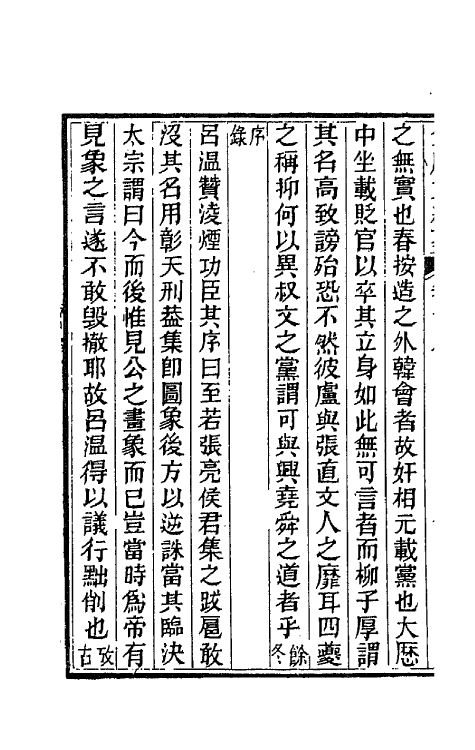 之無實也春按造之外韓會者故奸相元載黨也大厯
中坐載貶官以卒其立身如此無可言者而柳子厚謂
其名高致謗殆恐不然彼盧與張直文人之靡耳四夔
之稱抑何以異叔文之黨謂可與興堯舜之道者乎餘冬
序錄
呂温贊淩煙功臣其序曰至若張亮侯君集之跋扈敢
沒其名用彰天刑葢集卽圖象後方以逆誅當其臨決
太宗謂曰今而後惟見公之畫象而已豈當時爲帝有
見象之言遂不敢毀撤耶故呂温得以議行黜削也攷古